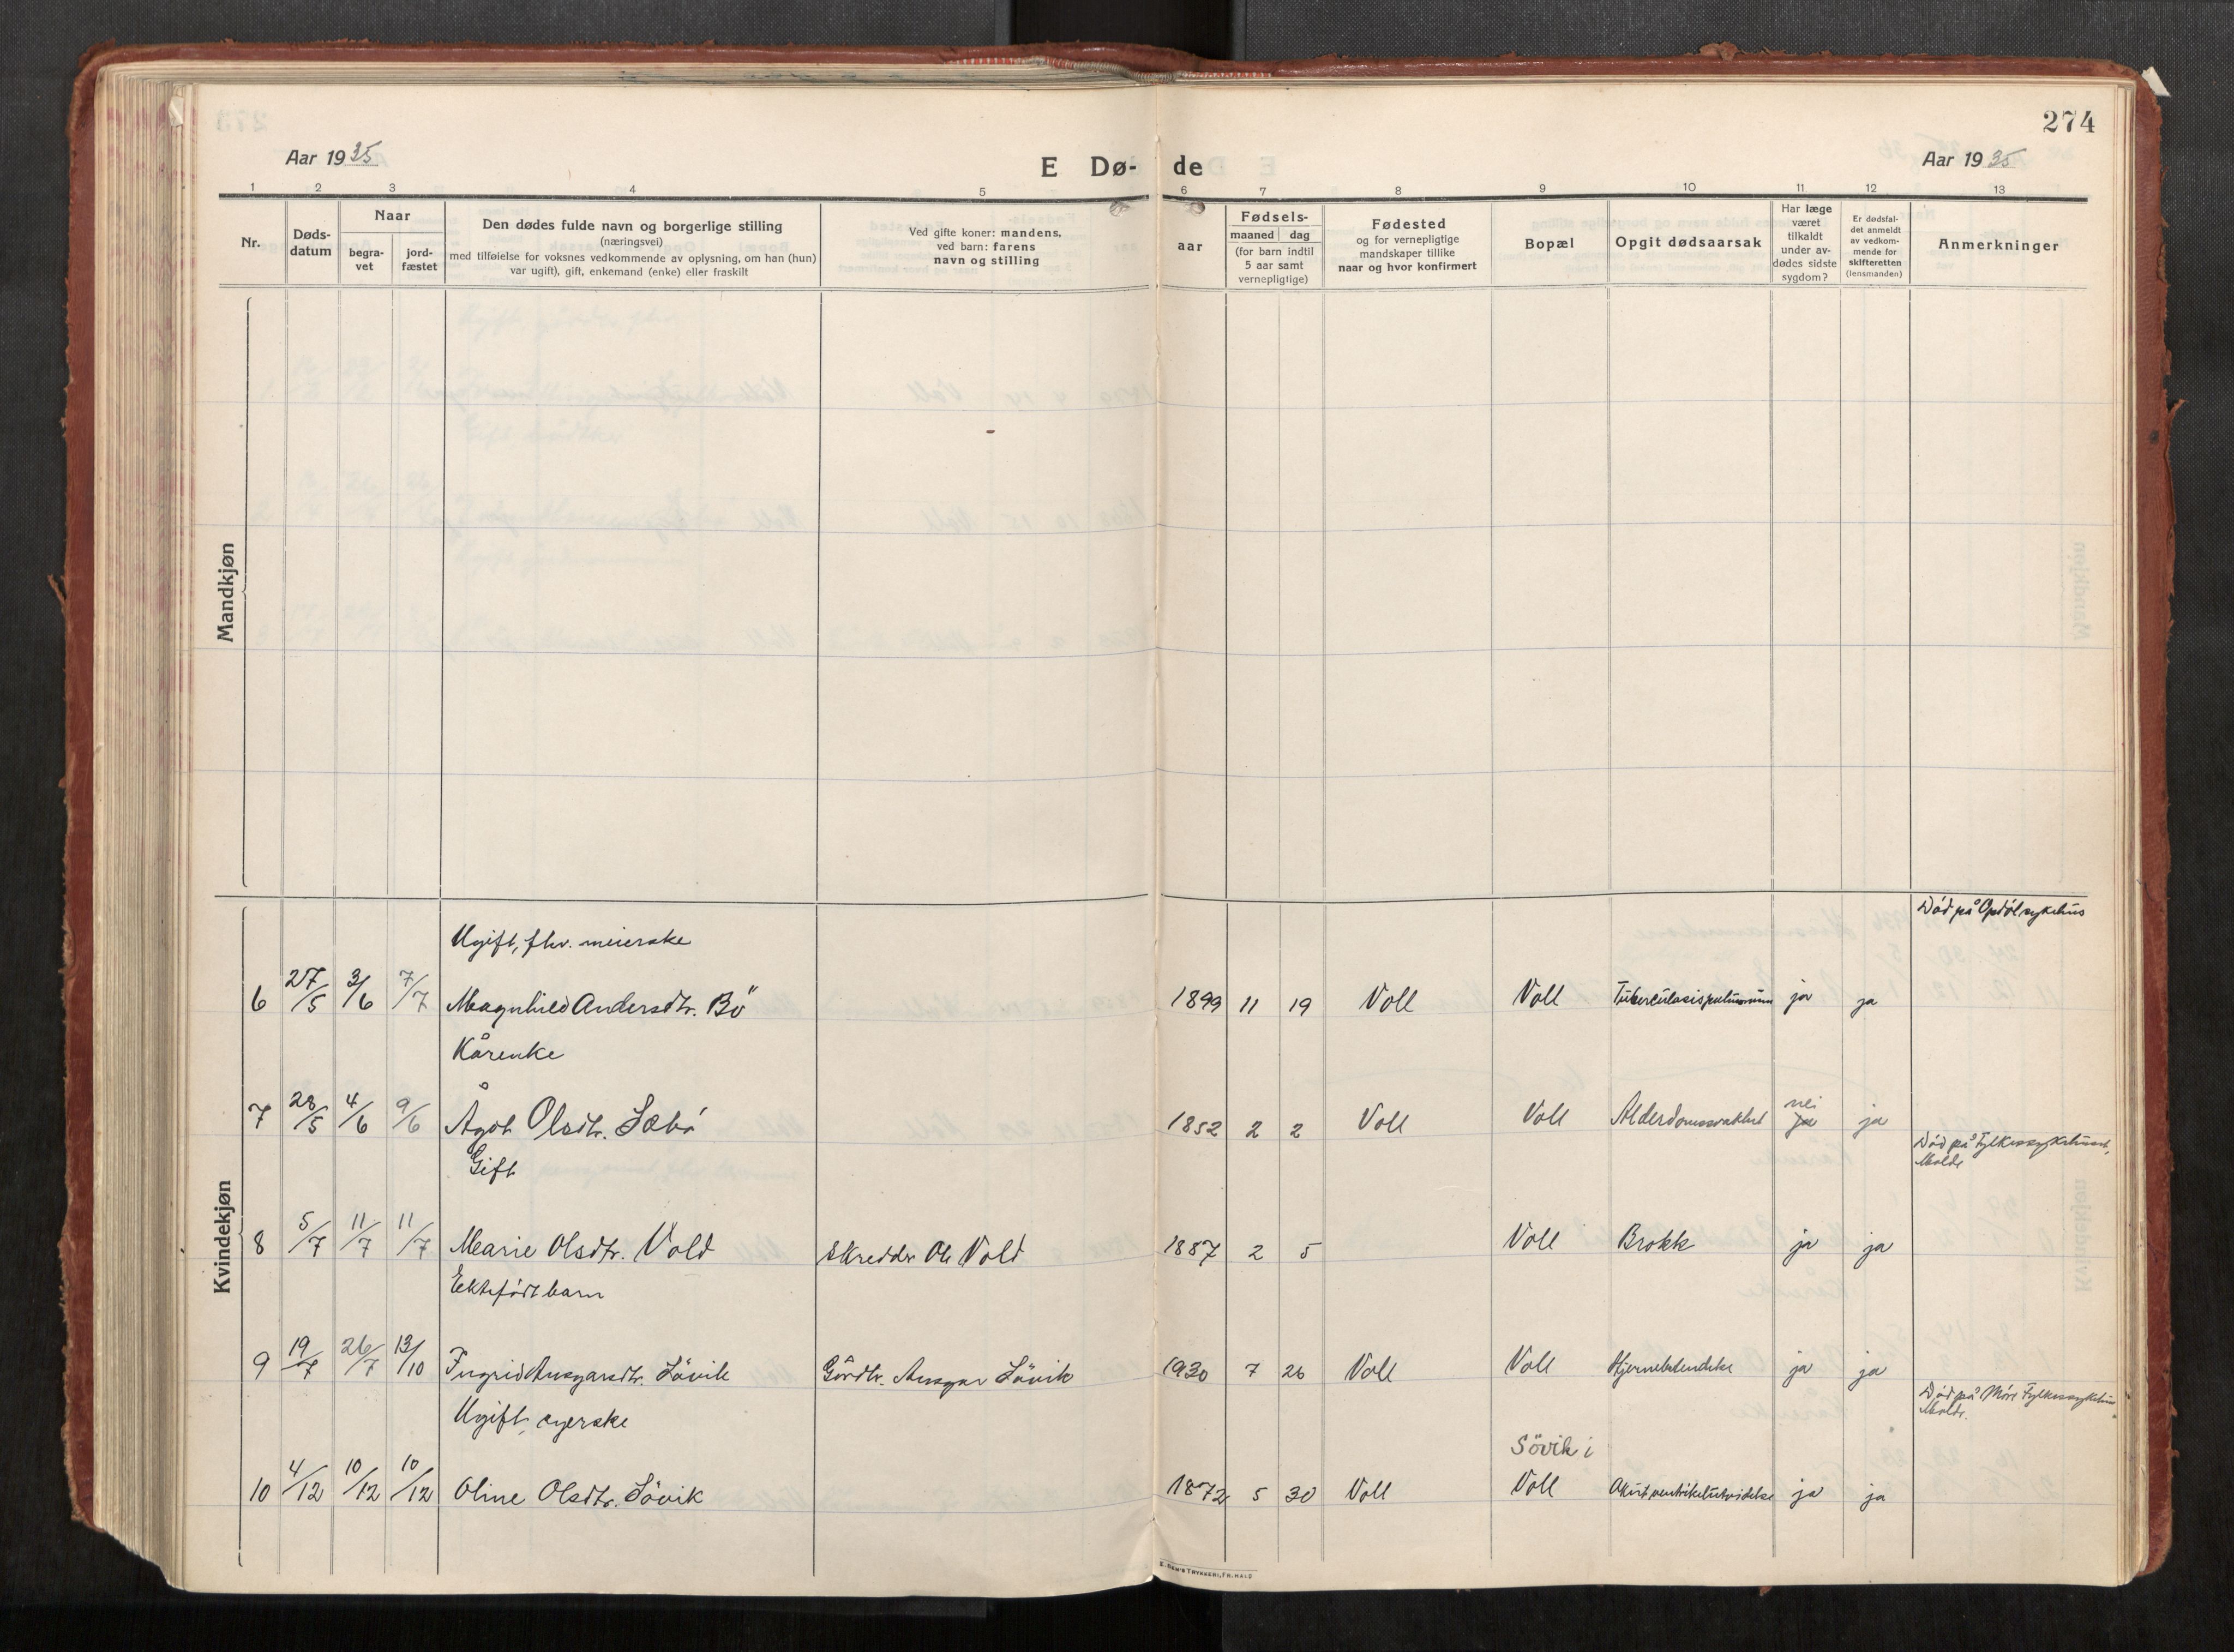 274
Aar 1935
E Dø-
de
Aar 1935
1 2 3 4 5 6 7 8 9 10 11 12 13
Nr.
Døds-
datum
Naar
begra-
vet
jord-
fæstet
Den dødes fulde navn og borgerlige stilling
(næringsvei)
med tilføielse for voksnes vedkommende av oplysning, om han (hun)
var ugift), gift, enkemand (enke) eller fraskilt
Ved gifte koner: mandens,
ved barn: farens
navn og stilling
aar
Fødsels-
maaned dag
(for barn indtil
5 aar samt
vernepligtige)
Fødested
og for vernepligtige
mandskaper tillike
naar og hvor konfirmert
Bopæl
Opgit dødsaarsak
Har læge
været
tilkaldt
under av-
dødes sidste
sygdom?
Er dødsfal-
det anmeldt
av vedkom-
mende for
skifteretten
(lensmanden)
Anmerkninger
Mandkjøn
Kvindekjøn
Död på Opdöl sykehus
Ugift, fhv. meierske
6 27/5 3/6 7/7 Magnhild Andersdtr. Bö 1899 11 19 Voll Voll Tuberculosis pulmonum ja ja
Kårenke
7 28/5 4/6 9/6 Ågot Olsdtr. Sæbö 1852 2 2 Voll Voll Alderdomssvakhet nei ja ja
Död på Fylkessykehuset,
Molde
Gift
8 5/7 11/7 11/7 Marie Olsdtr. Vold Skredder Ole Vold 1887 2 5 Voll Brokk ja ja
Ektefödt barn
9 19/7 26/7 13/10 Ingrid Ansgarsdtr. Sövik Gårdbr. Ansgar Sövik 1930 7 26 Voll Voll Hjernebetendelse ja ja
Död på Möre Fylkessykehus
Molde.
Ugift,
Sövik i
10 4/12 10/12 10/12 Oline Olsdtr. Sövik 1872 5 30 Voll Voll Akut ventrikelutvidelse ja ja